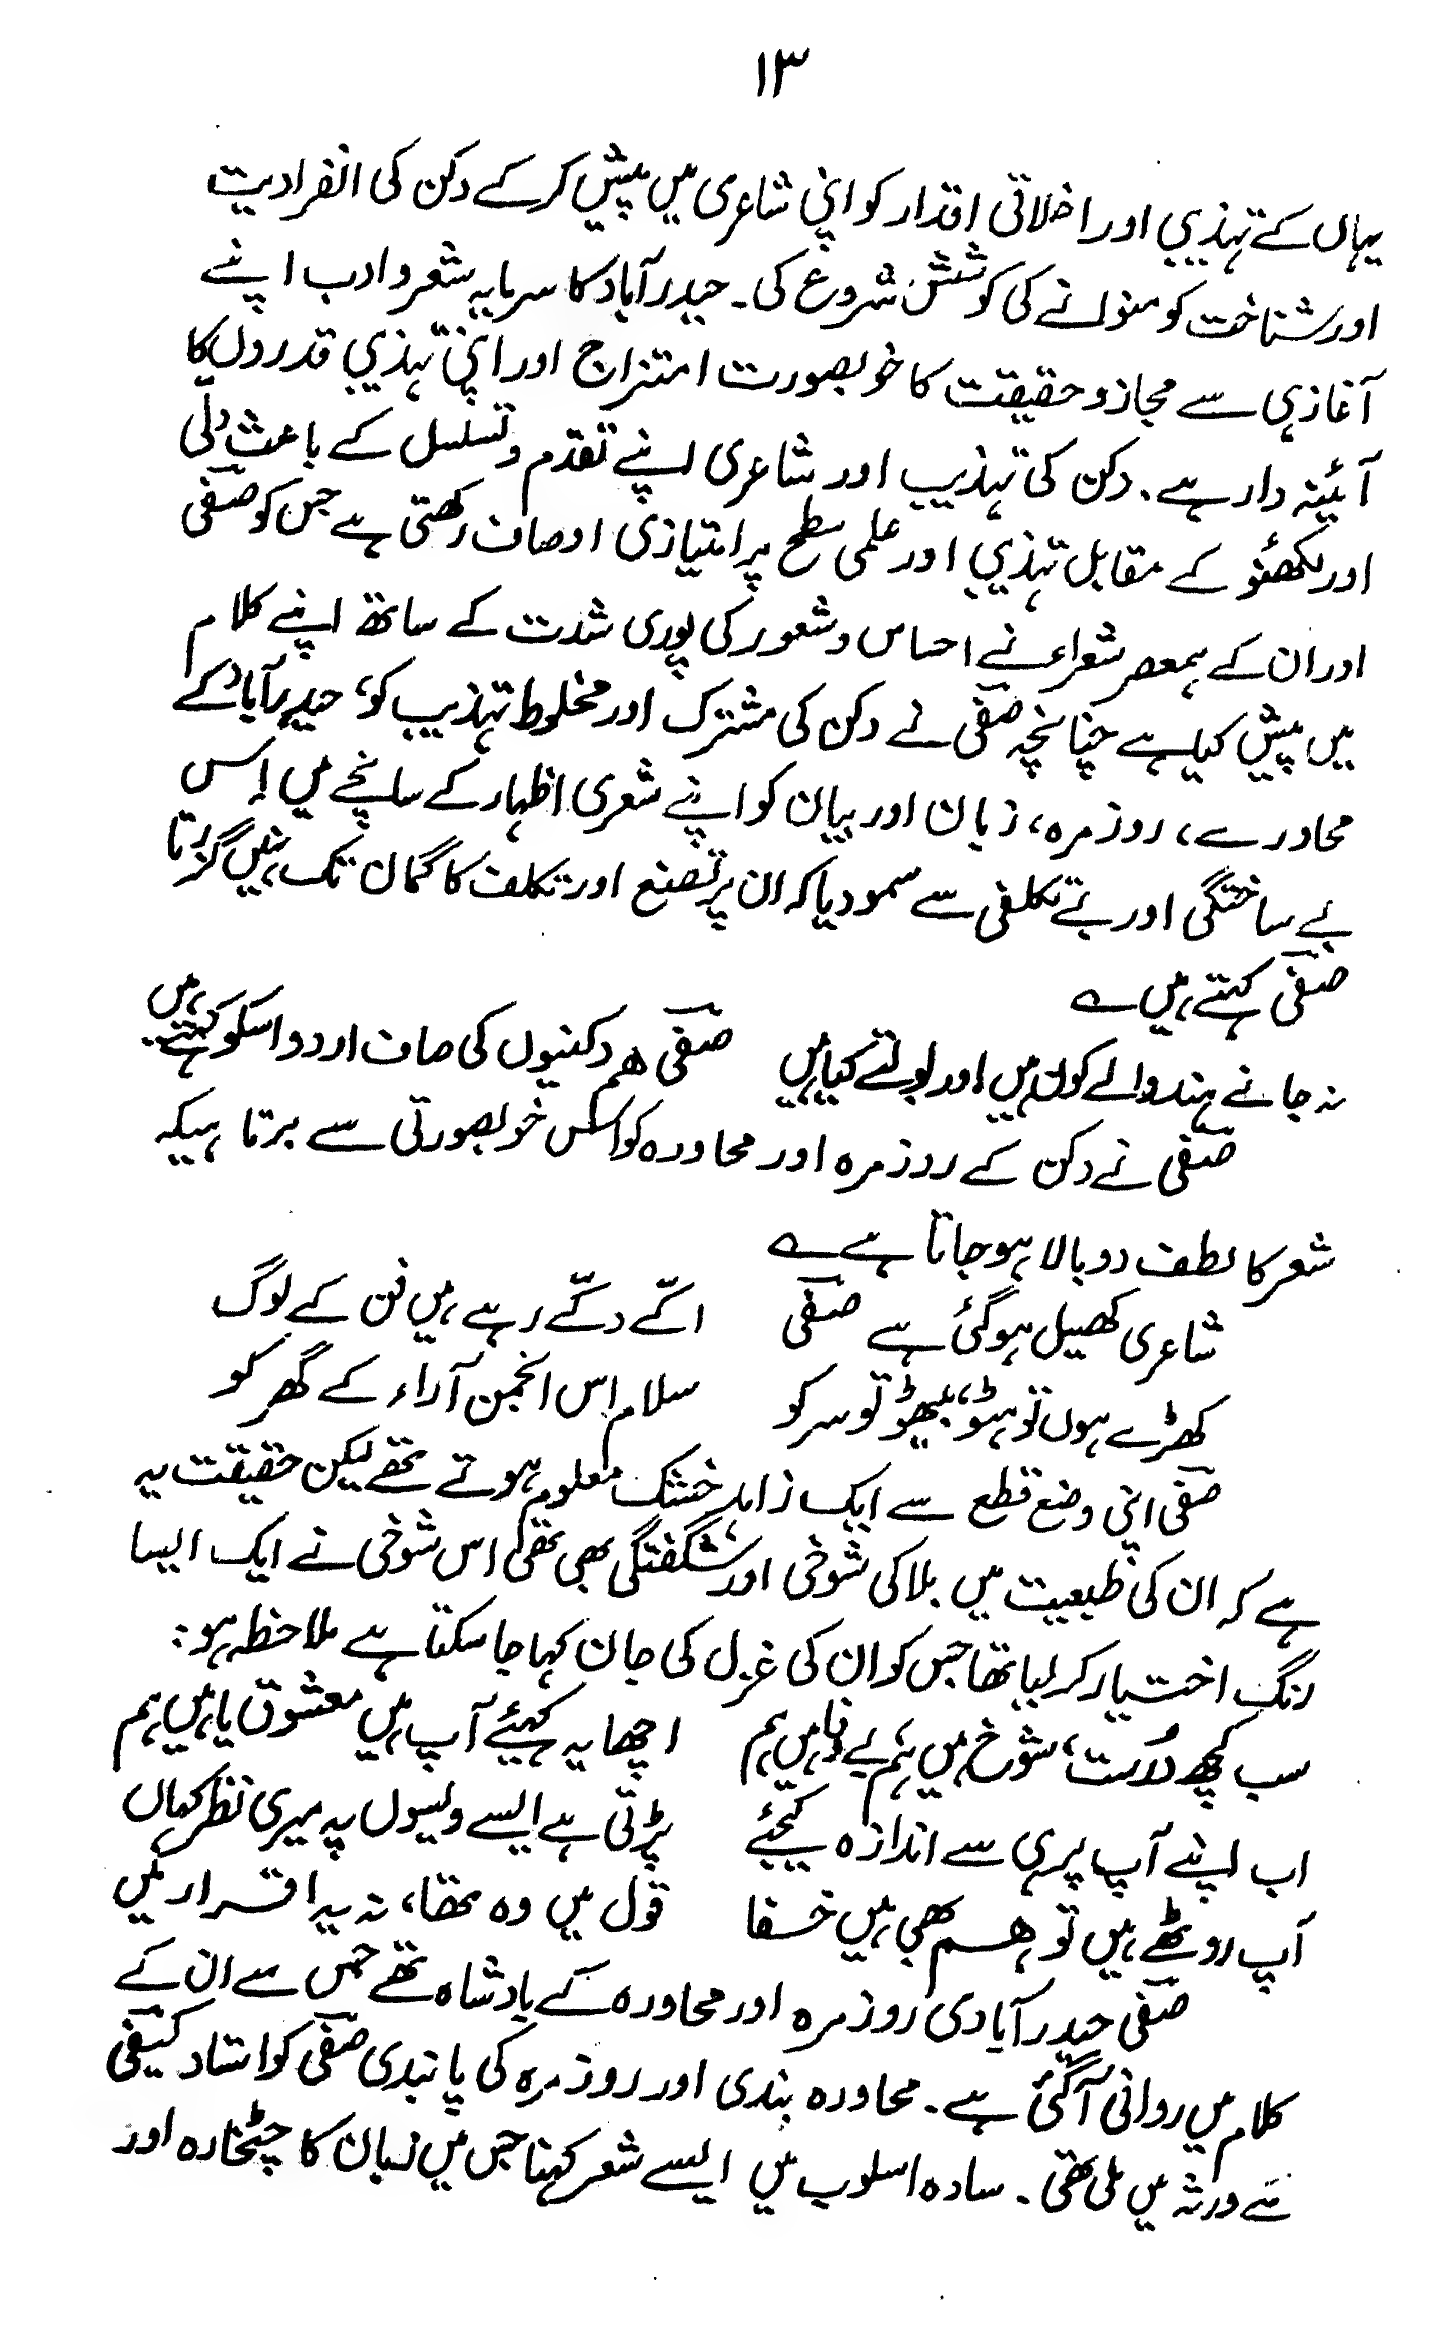 ۱۳
یہاں کے تہذیبی اور اخلاقی اقدار کو اپنی شاعری میں پیش کر کے دکن کی انفرادیت
اور شناخت کو منوانے کی کوشش شروع کی۔ حیدرآباد کا سرمایہ شعر و ادب اپنے
آغاز ہی سے مجاز و حقیقت کا خوبصورت امتزاج اور اپنی تہذیبی قدروں کا
آئینہ دار ہے۔ دکن کی تہذیب اور شاعری اپنے تقدم و تسلسل کے باعث دلّی
اور لکھنؤ کے مقابل تہذیبی اور علمی سطح پر امتیازی اوصاف رکھتی ہے جس کو صفی
اور ان کے ہمعصر شعراء نے احساس و شعور کی پوری شدت کے ساتھ اپنے کلام
میں پیش کیا ہے چنانچہ صفی نے دکن کی مشترک اور مخلوط تہذیب کو، حیدرآباد کے
محاورے، روزمرہ، زبان اور بیان کو اپنے شعری اظہار کے سانچے میں اِس
بے ساختگی اور بے تکلفی سے سمو دیا کہ ان پر تصنع اور تکلف کا گمان تک نہیں گزرتا
صفی کہتے ہیں ؎
نہ جانے ہند والے کون ہیں اور بولتے کیا ہیں صفی ہم دکنیوں کی صاف اردو اسکو کہتے ہیں
صفی نے دکن کے روزمرہ اور محاورہ کو اس خوبصورتی سے برتا ہیکہ
شعر کا لطف دوبالا ہو جاتا ہے ؎
شاعری کھیل ہو گئی ہے صفی اکّے دکّے رہے ہیں فن کے لوگ
کھڑے ہوں تو ہٹو، بیٹھو تو سر کو سلام اس انجمن آراء کے گھر کو
صفی اپنی وضع قطع سے ایک زاہد خشک معلوم ہوتے تھے لیکن حقیقت یہ
ہے کہ ان کی طبعیت میں بلا کی شوخی اور شگفتگی بھی تھی اس شوخی نے ایک ایسا
رنگ اختیار کر لیا تھا جس کو ان کی غزل کی جان کہا جا سکتا ہے ملاحظہ ہو:
سب کچھ دُرست، شوخ ہیں ہم بے وفا ہیں ہم اچھا یہ کہیئے آپ ہیں معشوق یا ہیں ہم
اب اپنے آپ پر ہی سے اندازہ کیجئے پڑتی ہے ایسے ویسوں پہ میری نظر کہاں
آپ روٹھے ہیں تو ہم بھی ہیں خفا قول میں وہ تھا، نہ یہ اقرار میں
صفی حیدرآبادی روزمرہ اور محاورہ کے بادشاہ تھے جس سے ان کے
کلام میں روانی آگئی ہے۔ محاورہ بندی اور روزمرہ کی پابندی صفی کو استاد کیفی
سے ورثہ میں ملی تھی۔ سادہ اسلوب میں ایسے شعر کہنا جس میں زبان کا چٹخارہ اور